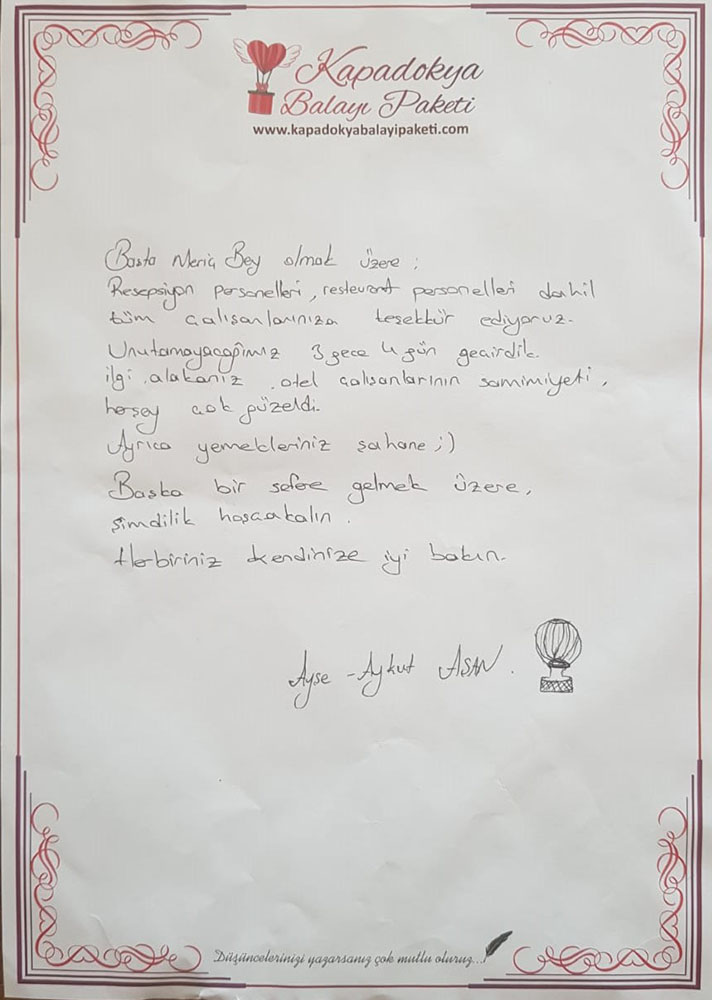 Kapadokya
Balayı Paketi
www.kapadokyabalayipaketi.com
Başta Meriç Bey olmak üzere ;
Resepsiyon personelleri, restaurant personelleri dahil
tüm çalışanlarınıza teşekkür ediyoruz.
Unutamayacağımız 3 gece 4 gün geçirdik.
ilgi, alakanız, otel çalışanlarının samimiyeti,
herşey çok güzeldi.
Ayrıca yemekleriniz şahane ;)
Başka bir sefere gelmek üzere,
şimdilik hoşçakalın.
Herbiriniz kendinize iyi bakın.
Ayşe - Aykut AŞAN.
Düşüncelerinizi yazarsanız çok mutlu oluruz...